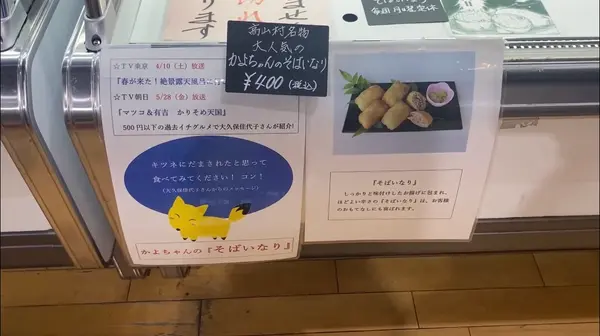 ませ
ります
毎週月曜定休
高山村名物
大人気の
かよちゃんのそばいなり
¥400（税込）
☆TV東京 4/10（土）放送
「春が来た！絶景露天風呂
☆TV朝日 5/28（金）放送
『マツコ＆有吉 かりそめ天国』
500円以下の過去イチグルメで大久保佳代子さんが紹介！
キツネにだまされたと思って
食べてみてください！コン！
（大久保佳代子さんからのメッセージ）
かよちゃんの『そばいなり』
『そばいなり』
しっかりと味付けしたお揚げに包まれ、
ほどよい辛さの『そばいなり』は、お客様
のおもてなしにも喜ばれます。